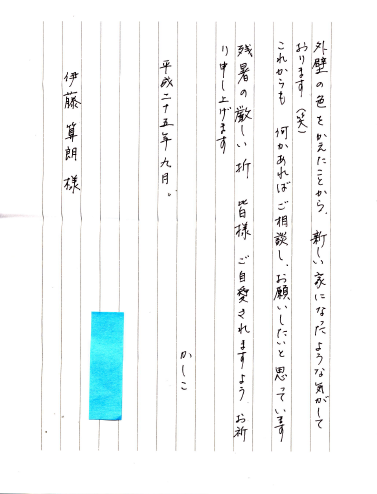 外壁の色をかえたことから、新しい家になったような気がして
おります(笑)
これからも 何かあればご相談し、お願いしたいと思っています
残暑の厳しい折、皆様 ご自愛されますよう お祈
り申し上げます
かしこ
平成二十五年九月。
伊藤 算朗 様